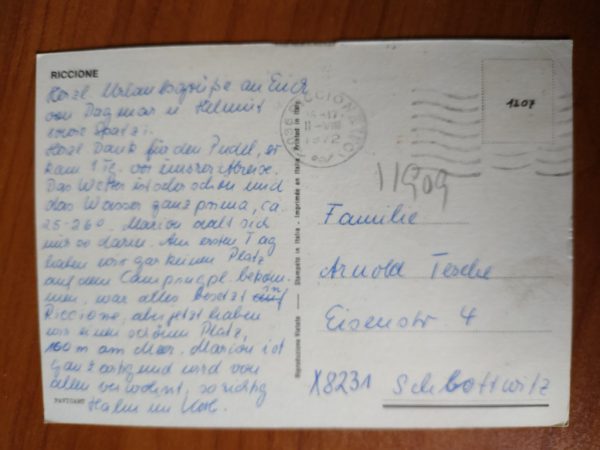 RICCIONE
Herzl. Urlaubsgrüße an Euch
von Dagmar u. Helmut
sowie Spatzi.
Herzl. Dank für den Pudel, er
kam 1 Tg. vor unserer Abreise.
Das Wetter ist oder schön und
das Wasser ganz prima, ca.
25-26°. Marion aalt sich
nur so darin. Am ersten Tag
haben wir gar keinen Platz
auf dem Campingpl. bekom-
men, war alles besetzt in
Riccione, aber jetzt haben
wir einen schönen Platz,
100 m am Meer. Marion ist
ganz artig und wird von
allen verwöhnt, so richtig
Hahn im Korb.
PAVICART
Riproduzione Vietata
Stampato in Italia - Imprimée en Italie - Printed in Italy
RICCIONE
1972
1207
11909
Familie
Arnold Tesche
Eisenstr 4
X8231 Schlottwitz